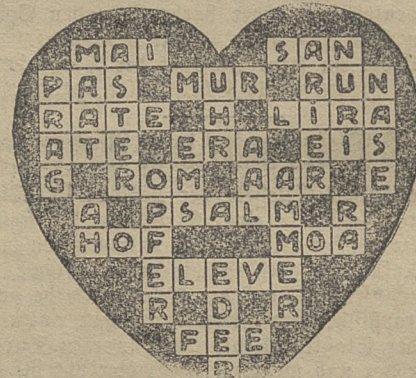 MAI SAN
PAS MUR RUN
RATE H LIRA
ATE ERA EIS
G ROM AAR E
A PSALM R
HOF MOA
ELEVE
R D R
FEE
R